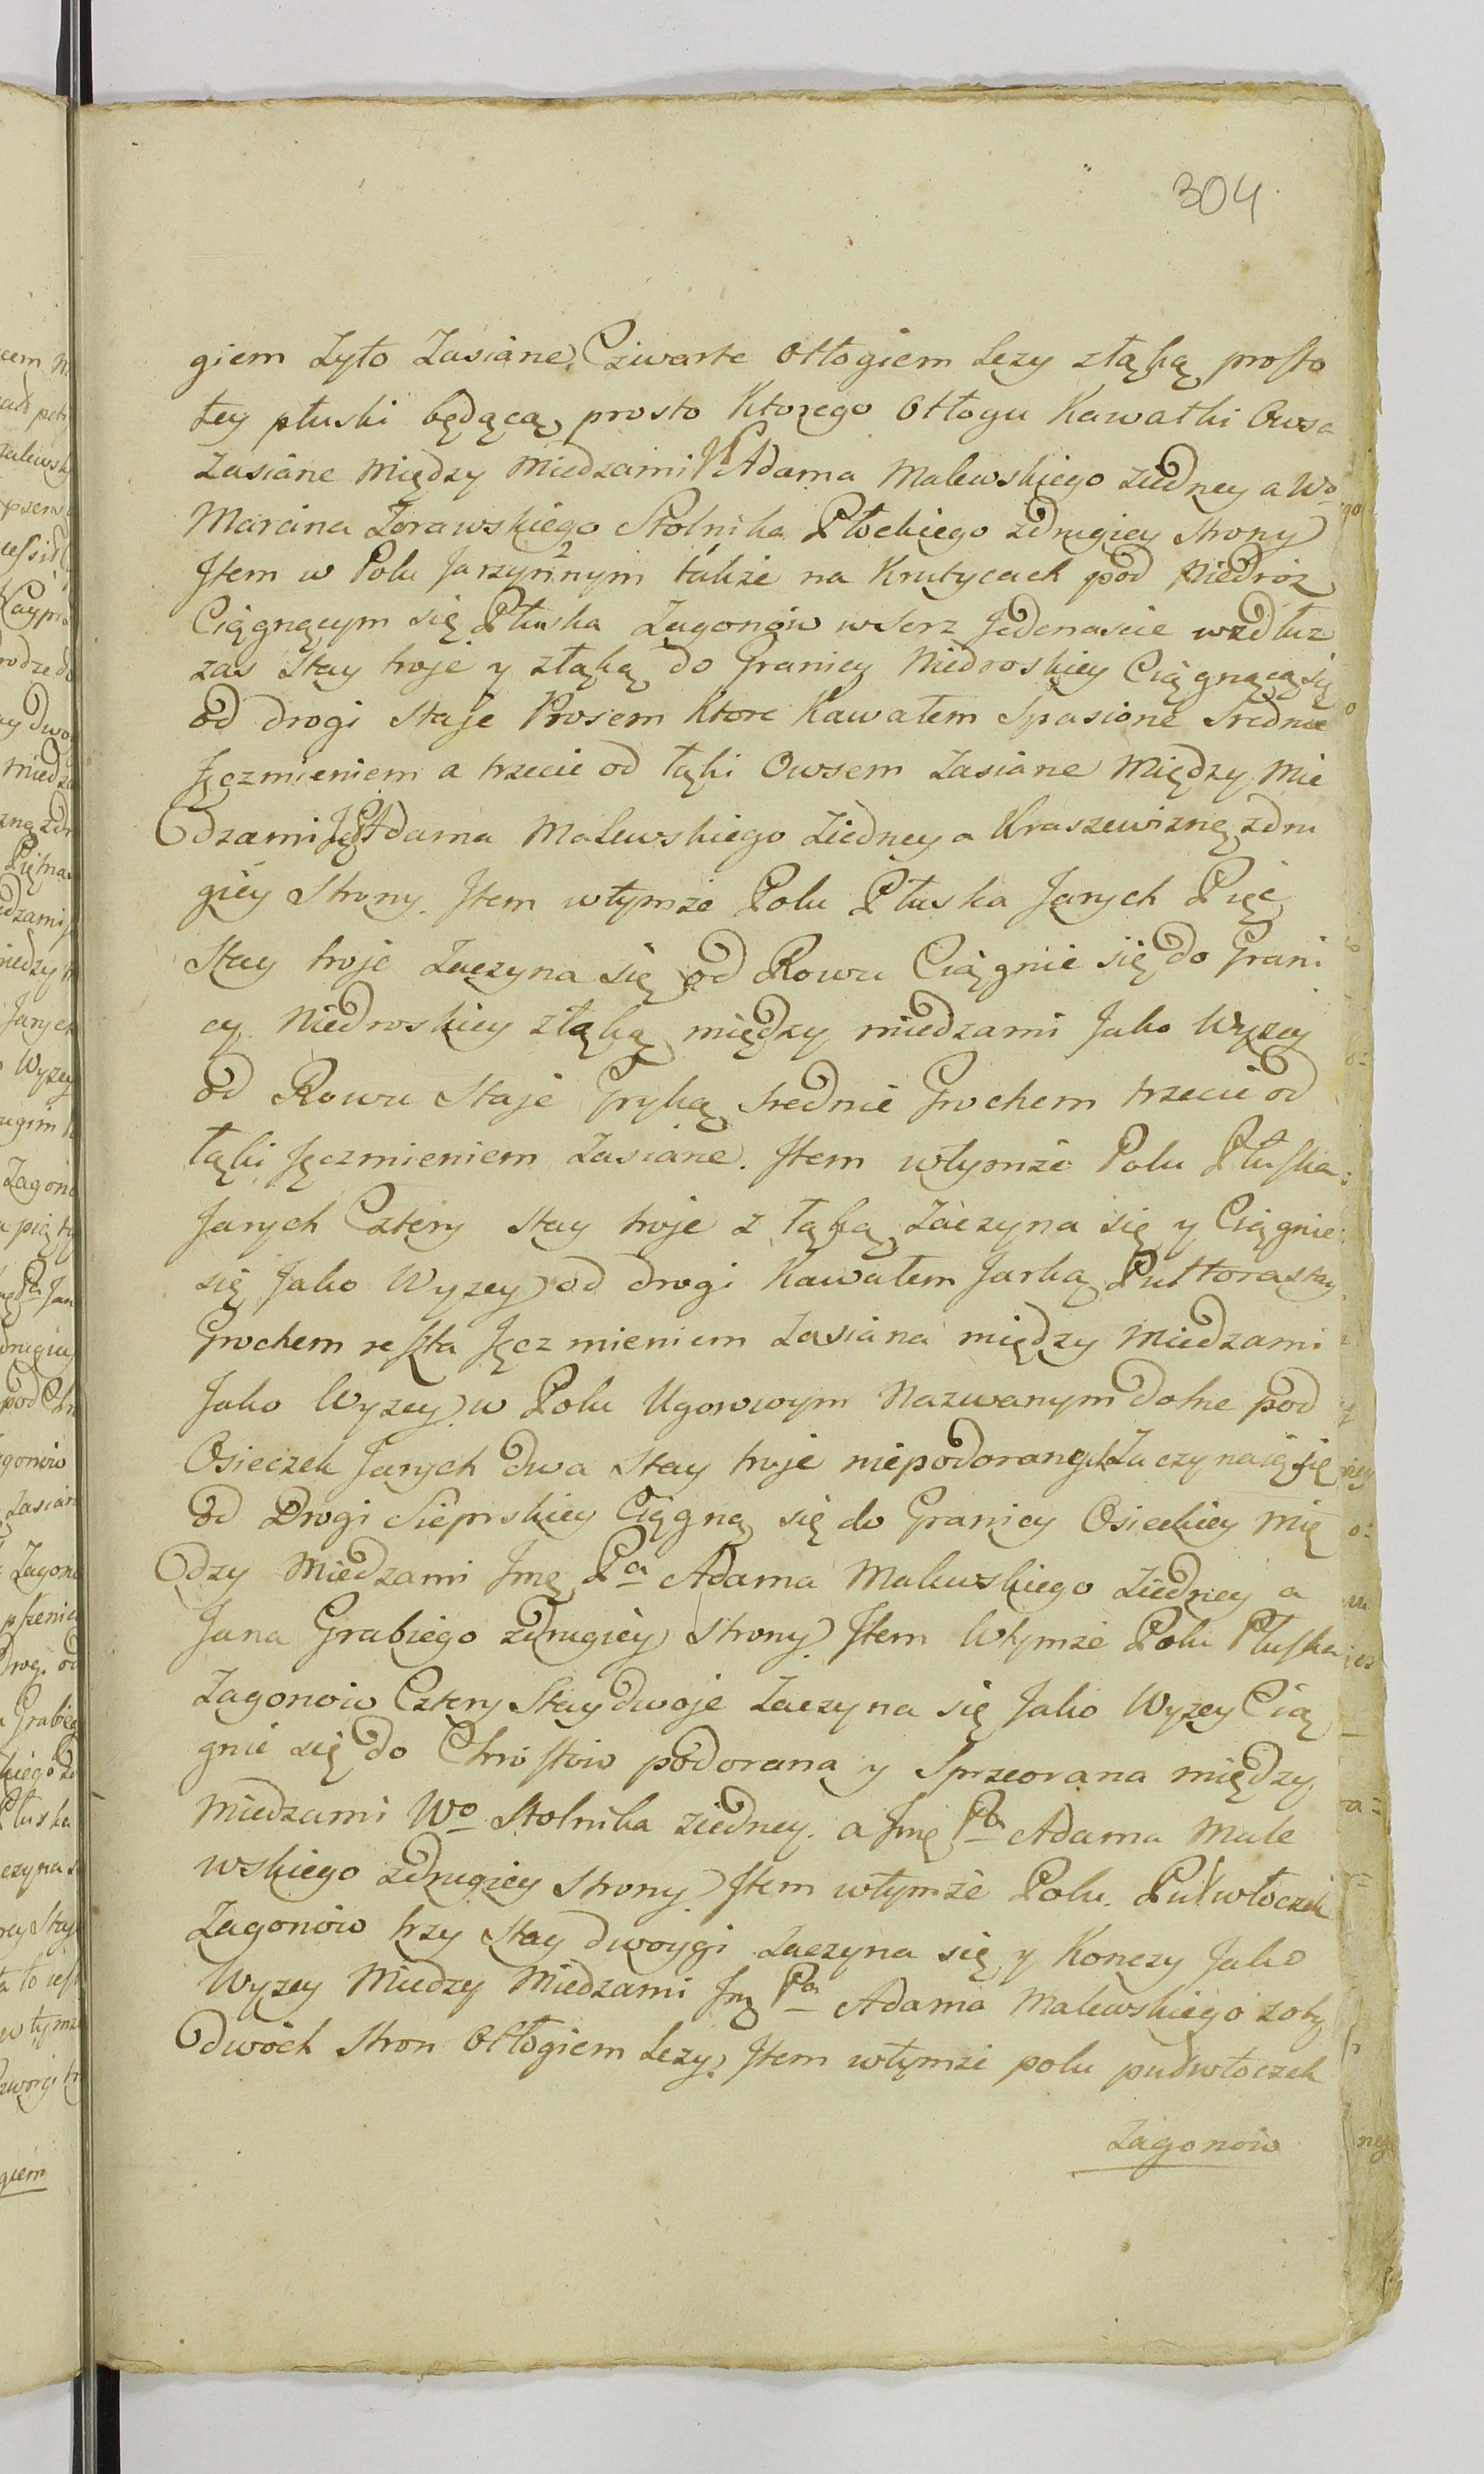 304
giem Zyto Zasiane, Czwarte Ołłogiem Lezy złąką prosto
tey płuski będącą, prosto Ktorego Ołłogu Kawałki Owsa
Zasiane Między Miedzami P Adama Malewskiego ziedney a Wo
Marcina Zorawskiego Stolnika Płockiego zdrugiey Strony
Jtem w Polu Jarzynnym także na Krutycach pod Niedroz
Ciągnącym się Płuska Zagonow wserz Jedenascie wzdłuz
zas Stay troje y złąką do Granicy Niedroskiey Ciągnącą się
od drogi Staje Prosem Ktore Kawałem Spasione Srednie
Jęczmieniem a trzecie od łąki Owsem Zasiane Między Mie
dzami Adama Malewskiego Ziedney a Kraszewiznę zdru
giey Strony. Jtem wtymże Polu Płuska Jarych Pięć
Stay troje Zaczyna się od Rowu Ciągnie się do Grani
cy Niedroskiey złąką między miedzami Jako Wyzey
od Rowu Staje Gryką srednie Grochem trzecie od
łąki Jęczmieniem Zasiane. Jtem wtymże Polu Płuska
Jarych Cztery Stay troje z łąką Zaczyna się y Ciągnie
się Jako Wyzey od drogi Kawałem Jarką Pułtora stay
Grochem reszta Jęczmieniem Zasiana między Miedzami
Jako Wyzey w Polu Ugorowym Nazwanym Dolne pod
Osieczek Jarych dwa Stay troje niepodoranych Zaczynaią się
od Drogi Sieprskiey Ciągną się do Granicy Osieckiey Mię
dzy Miedzami Jmę Pa Adama Malewskiego Ziedney a
Jana Grabiego zdrugiey Strony Jtem Wtymże Polu Płuska
Zagonow Cztery Stay dwoje Zaczyna się Jako Wyzey Cią
gnie się do Chrostow podorana y Sprzeorana między
Miedzami Wo Stolnika ziedney. a Jmę Pa Adama Male
wskiego zdrugiey Strony Jtem wtymże Polu. Pułwłoczek
Zagonow trzy Stay dwoygi Zaczyna się y Konczy Jako
Wyzey Miedzy Miedzami Jmę Pa Adama Malewskiego zoby
dwoch Stron Ołłogiem Lezy, Jtem wtymże polu pułwłoczek
Zagonow